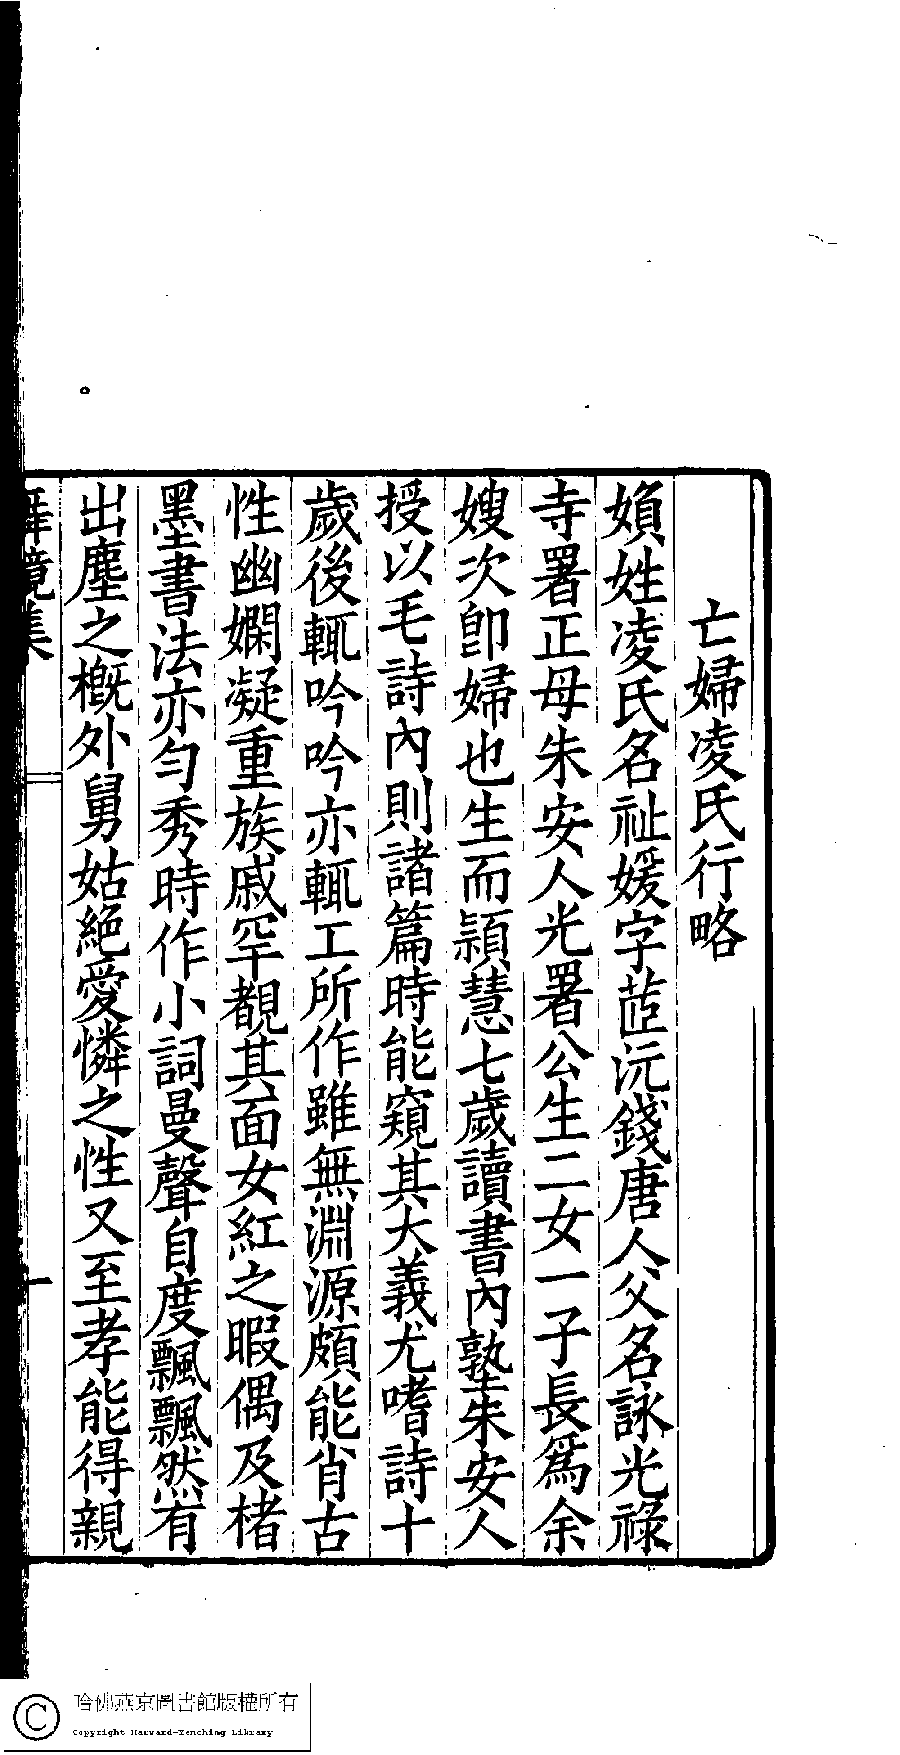 亡婦凌氏行略
婦姓凌氏名祉媛字茝沅錢唐人父名詠光祿
寺署正母朱安人光署公生二女一子長爲余
嫂次卽婦也生而穎慧七歲讀書內塾朱安人
授以毛詩內則諸篇時能窺其大義尤嗜詩十
歲後輒吟吟亦輒工所作雖無淵源頗能肖古
性幽嫻凝重族戚罕覩其面女紅之暇偶及楮
墨書法亦勻秀時作小詞曼聲自度飄飄然有
出塵之概外舅姑絕愛憐之性又至孝能得親
舜鏡集
一
哈佛燕京圖書館版權所有
Copyright Harvard-Yenching Library